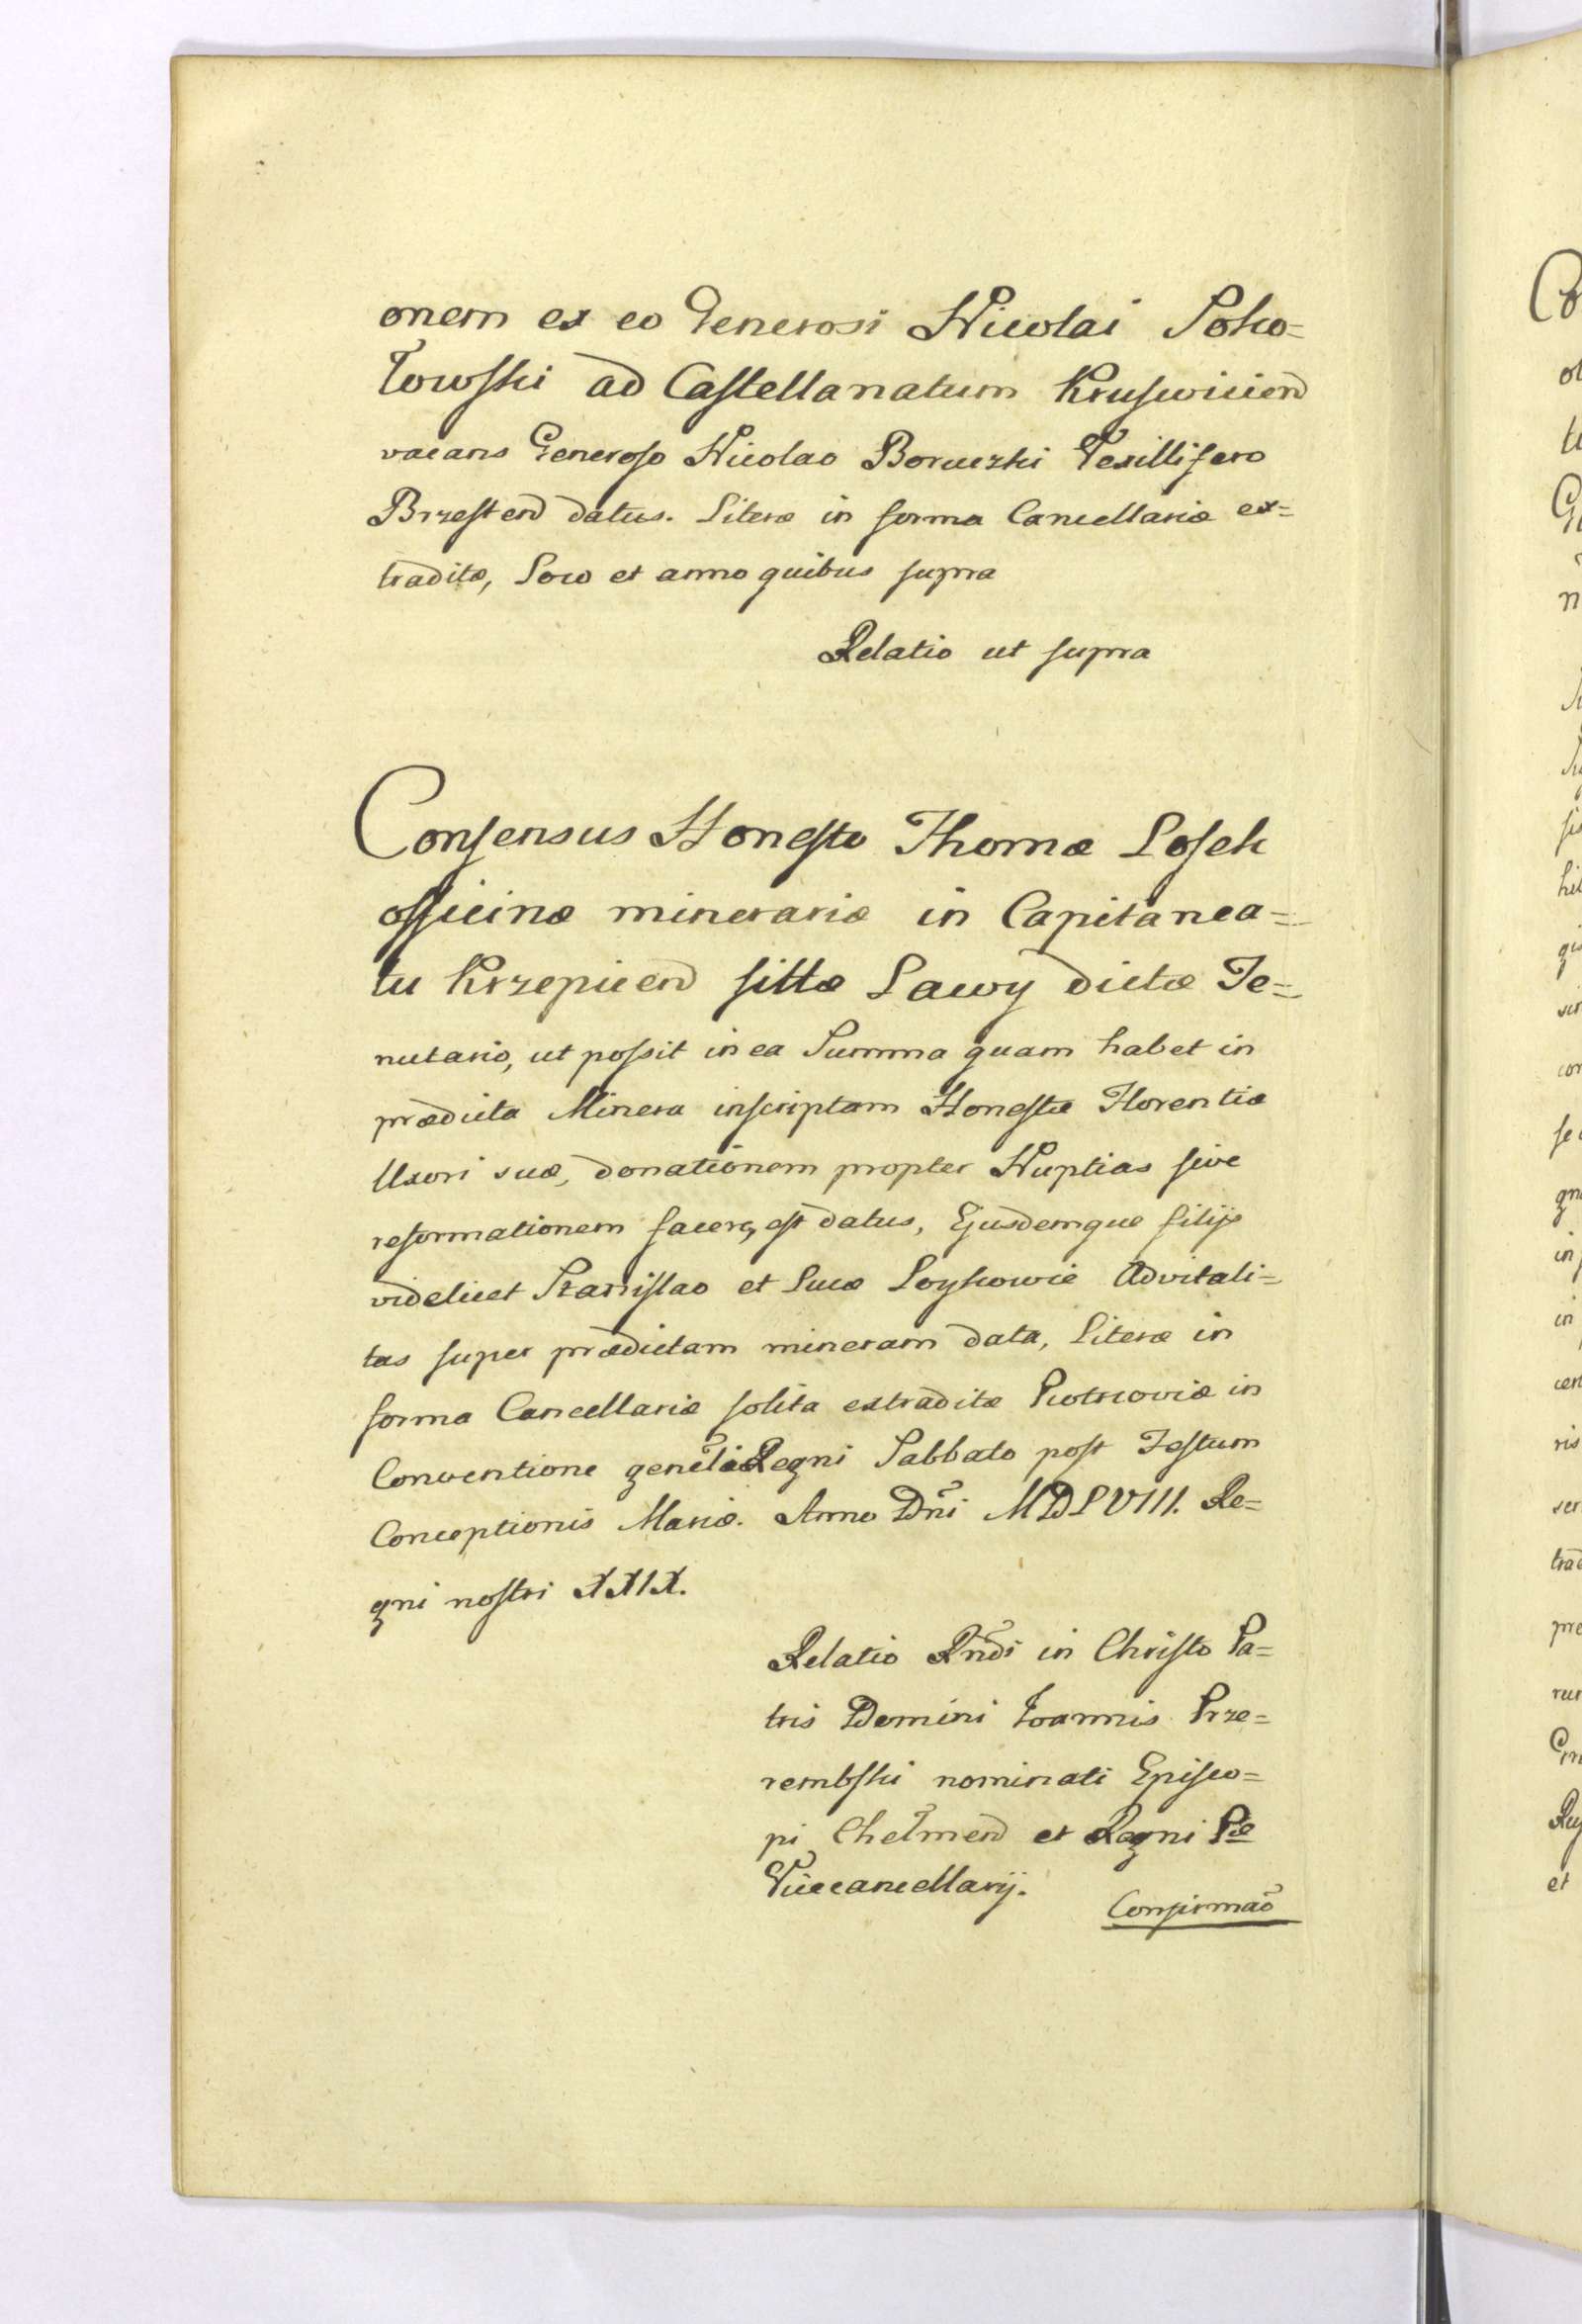 onem ex eo Generosi Nicolai Soko=
łowski ad Castellanatum Kruswicien̄
vacans Generoso Nicolao Boruczki Vexillifero
Brzesten̄ datus. Literæ in forma Cancellariæ ex=
traditæ, Loco et anno quibus supra
Relatio ut supra
Consensus Honesto Thomæ Losek
officinæ minerariæ in Capitanea=
tu Krzepicen̄ sittæ Lawy dictæ Te=
nutario, ut possit in ea Summa quam habet in
prædicta Minera inscriptam Honestæ Florentiæ
Uxori suæ, donationem propter Nuptias sive
reformationem facere, est datus, Ejusdemque filijs
videlicet Stanislao et Lucæ Loyskowie Advitali=
tas super prædictam mineram data, Literæ in
forma Cancellariæ solita extraditæ Piotrcoviæ in
Conventione gen̄eli Regni Sabbato post Festum
Conceptionis Mariæ. Anno Dn̄i MDLVIII. Re=
gni nostri XXIX.
Relatio Rn̄di in Christo Pa=
tris Domini Joannis Prze=
rembski nominati Episco=
pi Chełmen̄ et Regni P̲æ̲
Vicecancellarij.
Confirmaō